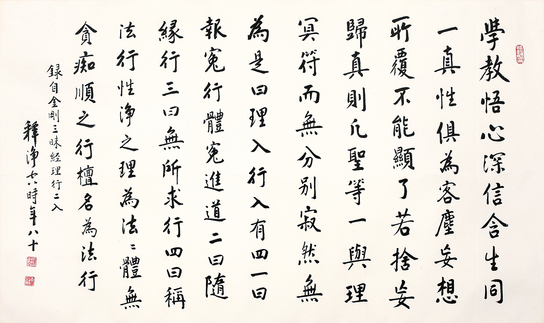 學教悟心深信含生同
一真性俱為客塵妄想
所覆不能顯了若捨妄
歸真則凡聖等一與理
冥符而無分别寂然無
為是曰理入行入有四一曰
報冤行體冤進道二曰隨
緣行三曰無所求行四曰稱
法行性淨之理為法〻體無
貪痴順之行檀名為法行
錄自金剛三昧經理行二入
釋淨空時年八十